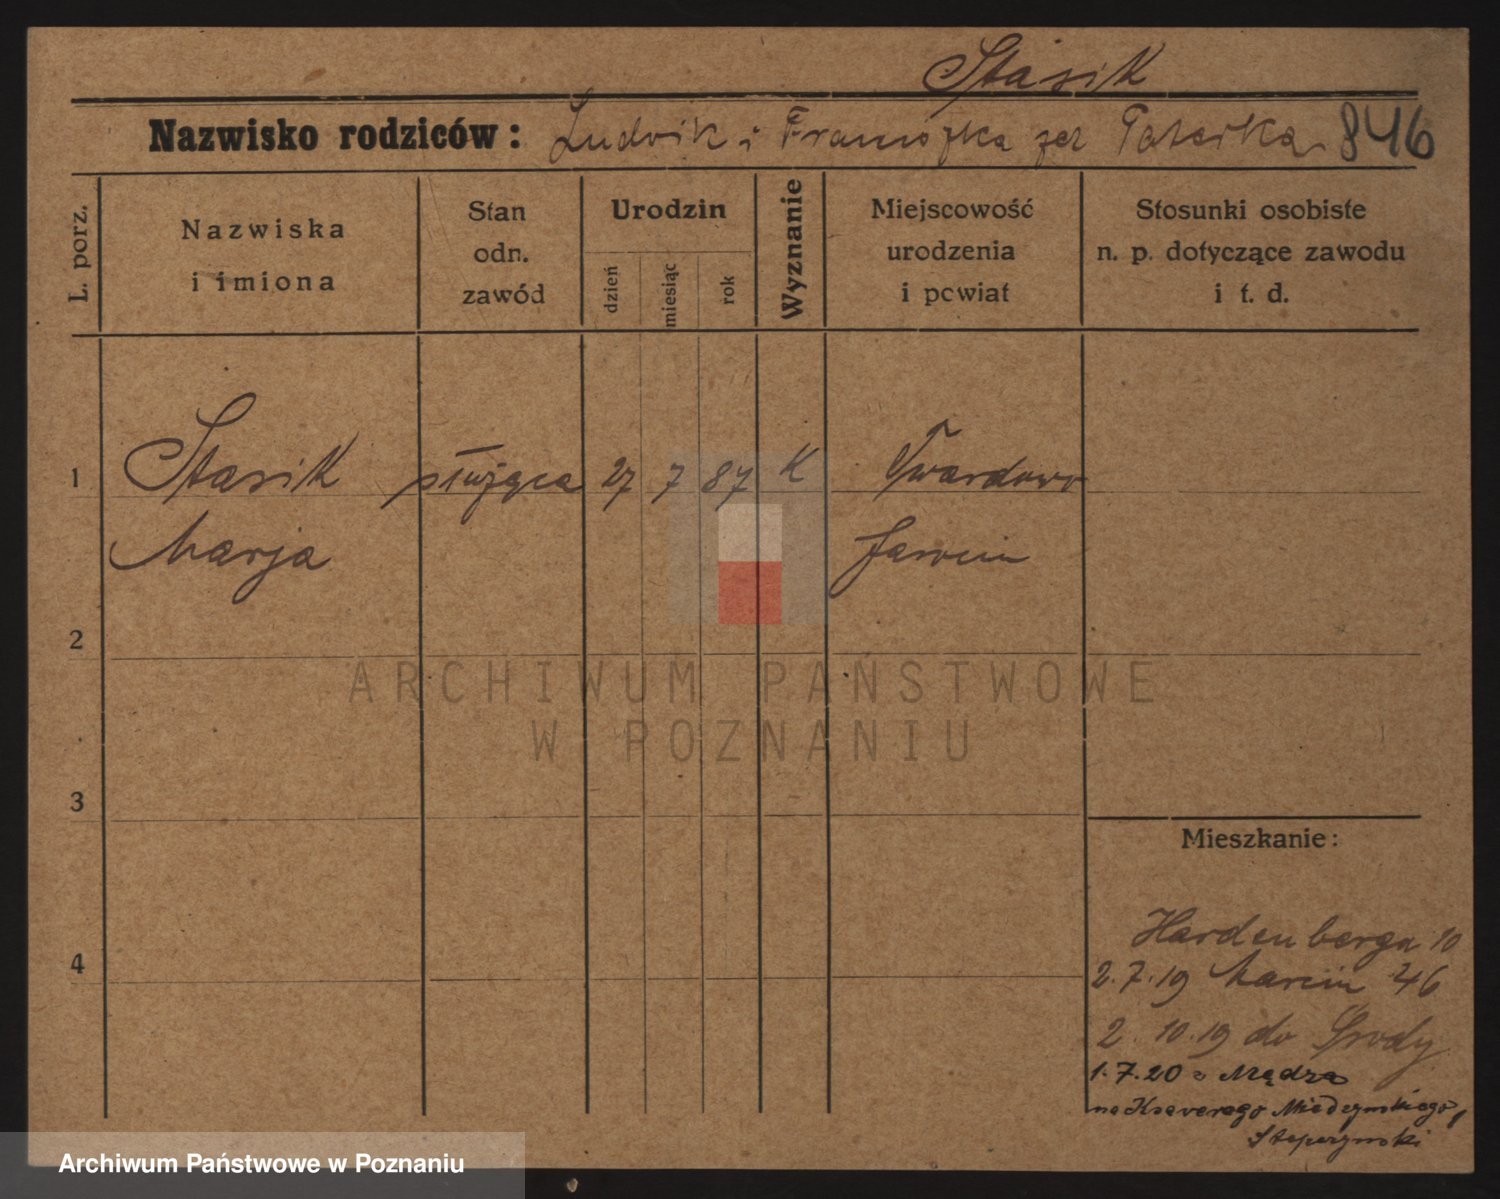 Stasik
Nazwisko rodziców: Ludwik i Franciszka zd 846
L. porz.
Nazwiska
i imiona
Stan
odn.
zawód
Urodzin
dzień
miesiąc
rok
Wyznanie
Miejscowość
urodzenia
i powiat
Stosunki osobiste
n. p. dotyczące zawodu
i t. d.
1 Stasik służąca 27 7 87 K Twardowo
Marja Jarocin
2
ARCHIWUM PAŃSTWOWE
W POZNANIU
3
Mieszkanie:
4
Hardenberga 10
2.7.19 Marcin 46
2.10.19 do Środy
1.7.20 z
na Ksawerego
Archiwum Państwowe w Poznaniu